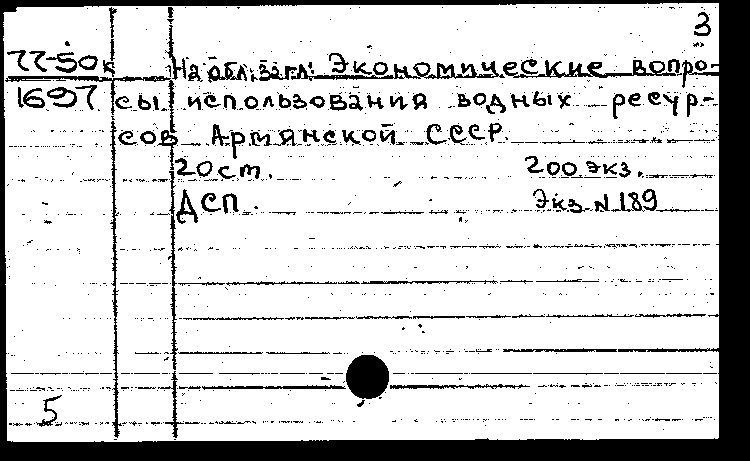 3
77-50к На обл. загл: Экономические вопро-
1697 сы использования водных ресур-
сов Армянской ССР.
20 ст. 200 экз.
ДСП. Экз N 189
5